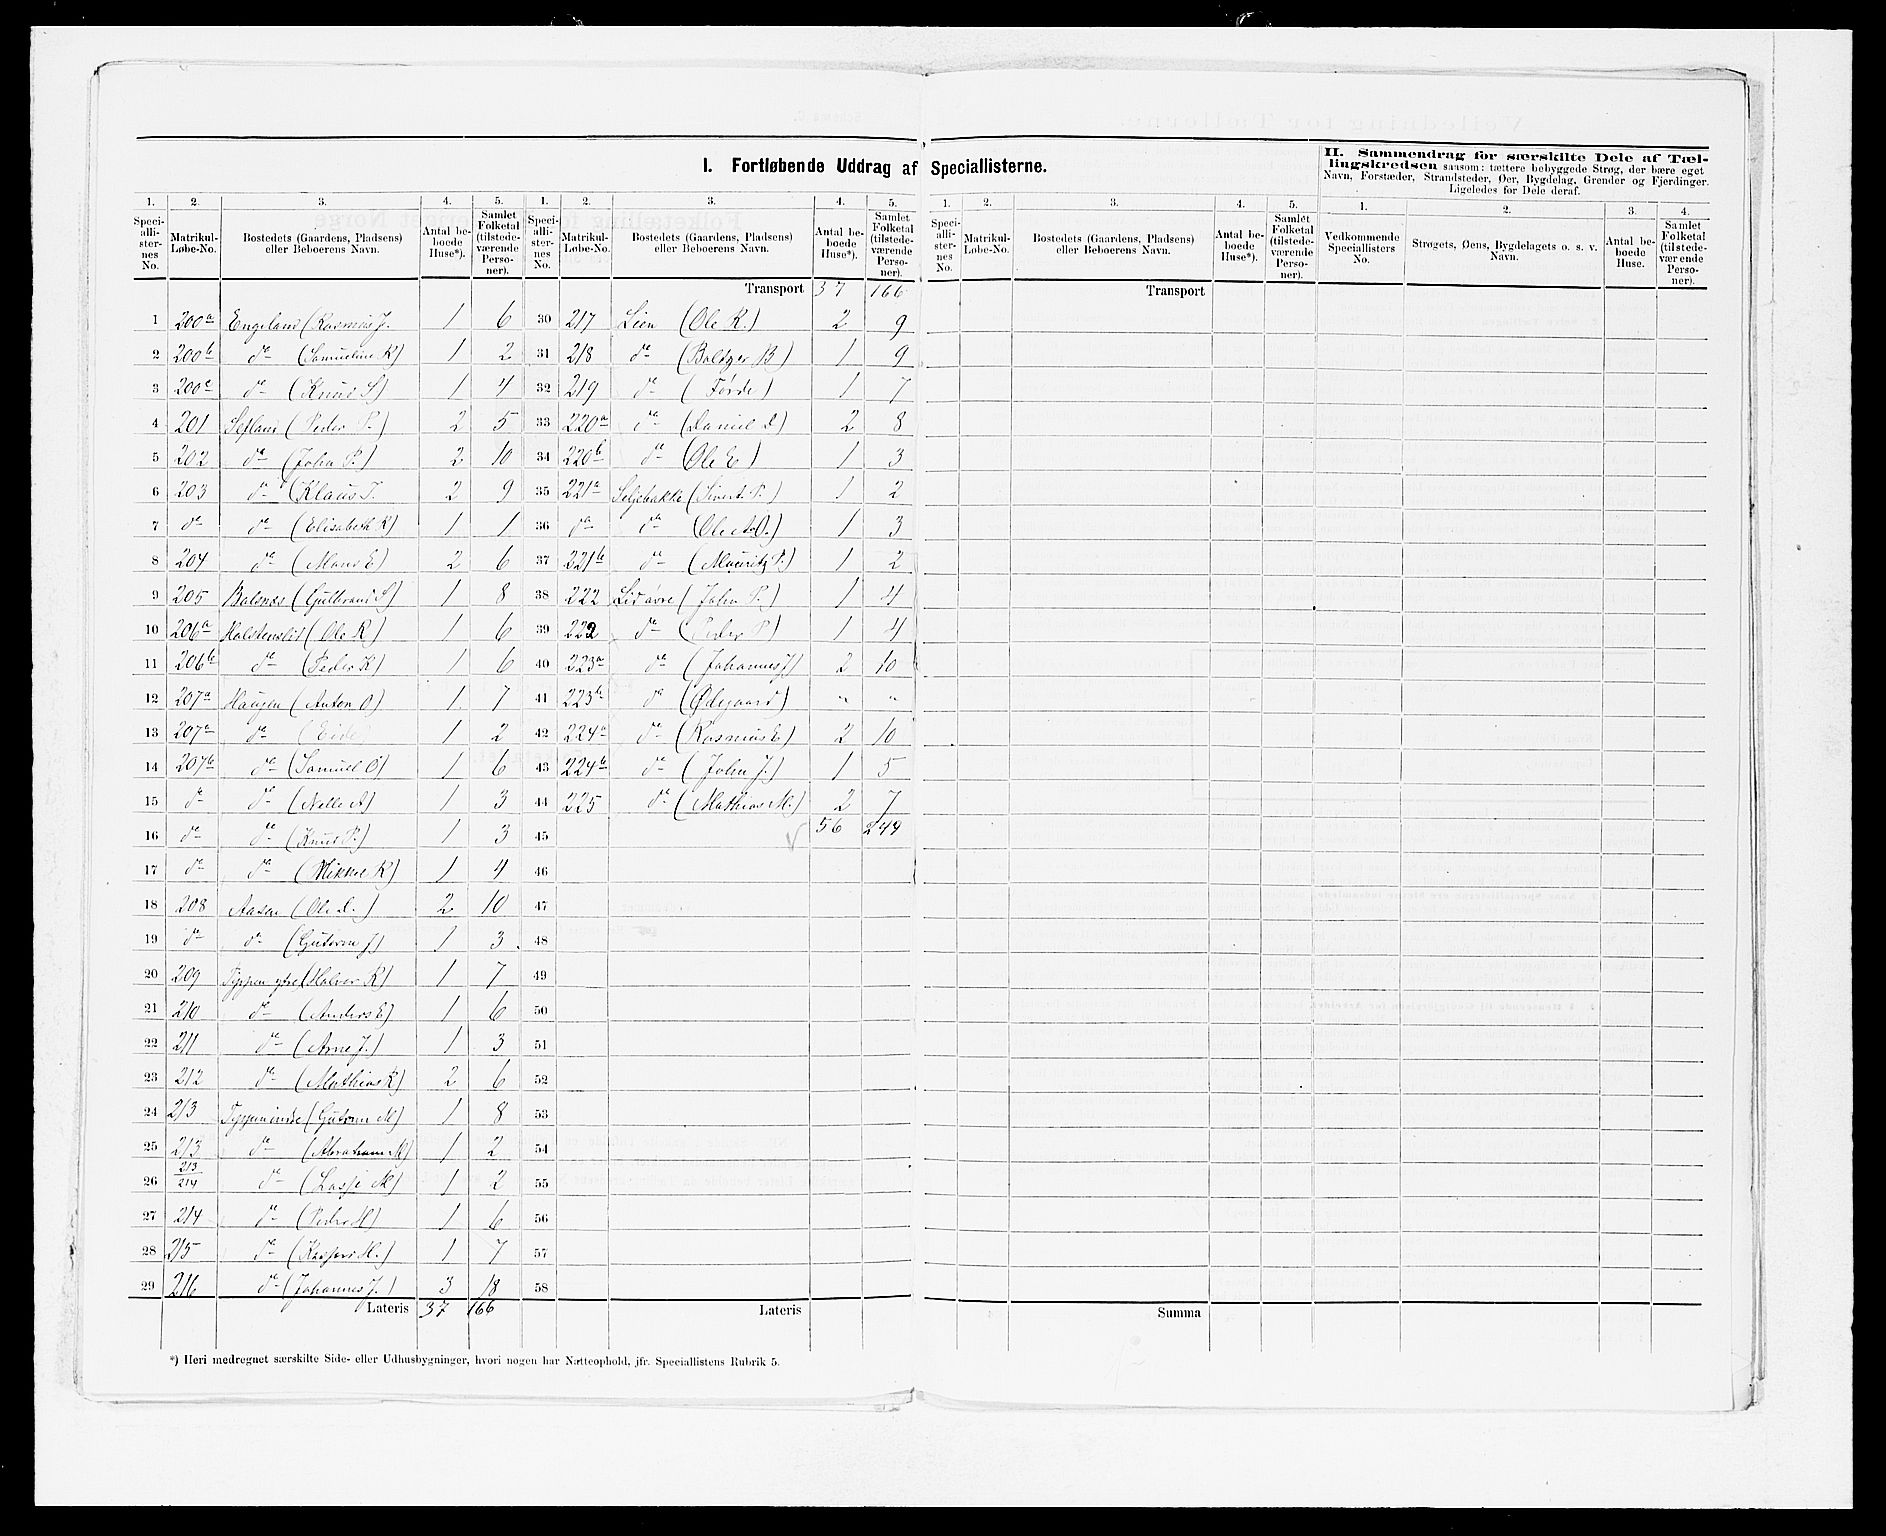 I. Fortløbende Uddrag af Speciallisterne.
II. Sammendrag for særskilte Dele af Tæl-
lingskredsen saasom: tættere bebyggede Strøg, der bære eget
Navn, Forstæder, Strandsteder, Øer, Bygdelag, Grender og Fjerdinger.
Ligeledes for Dele deraf.
1. 2. 3. 4. 5. 1. 2. 3. 4. 5. 1. 2. 3. 4. 5. 1. 2. 3. 4.
Speciallisternes No. Matrikul-Løbe-No. Bostedets (Gaardens, Pladsens) eller Beboerens Navn. Antal beboede Huse*). Samlet Folketal (tilstedeværende Personer).
Speciallisternes No. Matrikul-Løbe-No. Bostedets (Gaardens, Pladsens) eller Beboerens Navn. Antal beboede Huse*). Samlet Folketal (tilstedeværende Personer).
Speciallisternes No. Matrikul-Løbe-No. Bostedets (Gaardens, Pladsens) eller Beboerens Navn. Antal beboede Huse*). Samlet Folketal (tilstedeværende Personer).
Vedkommende Speciallisters No. Strøgets, Øens, Bygdelagets o. s. v. Navn. Antal beboede Huse. Samlet Folketal (tilstedeværende Personer).
Transport 37 166 Transport
1 200a Engeland (Rasmus J. 1 6 30 217 Lien (Ole K.) 2 9
2 200b do (Samueline K) 1 2 31 218 do (Baltzer B) 1 9
3 200c do (Knud S) 1 4 32 219 do (Førde) 1 7
4 201 (Peder P.) 2 5 33 220a do (Daniel D) 2 8
5 202 do (John P.) 2 10 34 220b do (Ole E) 1 3
6 203 do (Klaus P. 2 9 35 221a Seljebakke (Sivert P.) 1 2
7 do do (Elisabeth K) 1 1 36 do do (Ole A.O.) 1 3
8 204 do (Mons E) 2 6 37 221b do (Mauritz P.) 1 2
9 205 Balsnes (Gulbrand S) 1 8 38 222 (John P.) 1 4
10 206a (Ole K) 1 6 39 222 do (Peder P) 1 4
11 206b do (Peder K) 1 6 40 223a do (Johannes J) 2 10
12 207a Haugen (Anton O) 1 7 41 223b do (Ødegaard) " "
13 207a do (Eide) 1 2 42 224a do (Rasmus E) 2 10
14 207b do (Samuel O) 1 6 43 224b do (John J.) 1 5
15 do do (Nille A) 1 3 44 225 do (Mathias M.) 2 7
16 do do (Knud P.) 1 3 45 56 249
17 do do (Mikkel K) 1 4 46
18 208 Aasen (Ole L.) 2 10 47
19 do do (Gutorm J) 1 3 48
20 209 Tyssen ytre (Halvor K) 1 7 49
21 210 do (Anders E) 1 6 50
22 211 do (Arne J.) 1 3 51
23 212 do (Mathias K) 2 6 52
24 213 (Gutorm M) 1 8 53
25 213 do (Abraham K) 1 2 54
26 213/214 do (Lasse M) 1 2 55
27 214 do (Peder H) 1 6 56
28 215 do (Kasper H.) 1 7 57
29 216 do (Johannes J.) 3 18 58
Lateris 37 166 Lateris Summa
*) Heri medregnet særskilte Side- eller Udhusbygninger, hvori nogen har Natteophold, jfr. Speciallistens Rubrik 5.